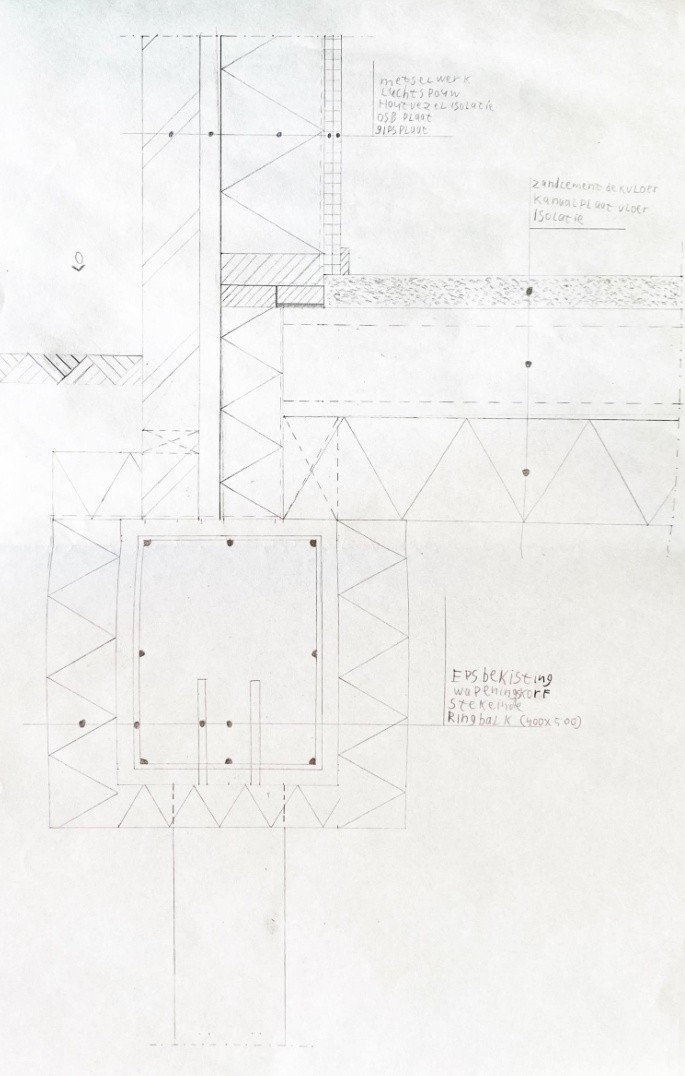 metselwerk
Luchtspouw
Houtvezel isolatie
OSB plaat
gipsplaat
zandcement dekvloer
Kanaalplaat vloer
Isolatie
EPS bekisting
wapeningskorf
Stekeinde
Ringbalk (400x500)